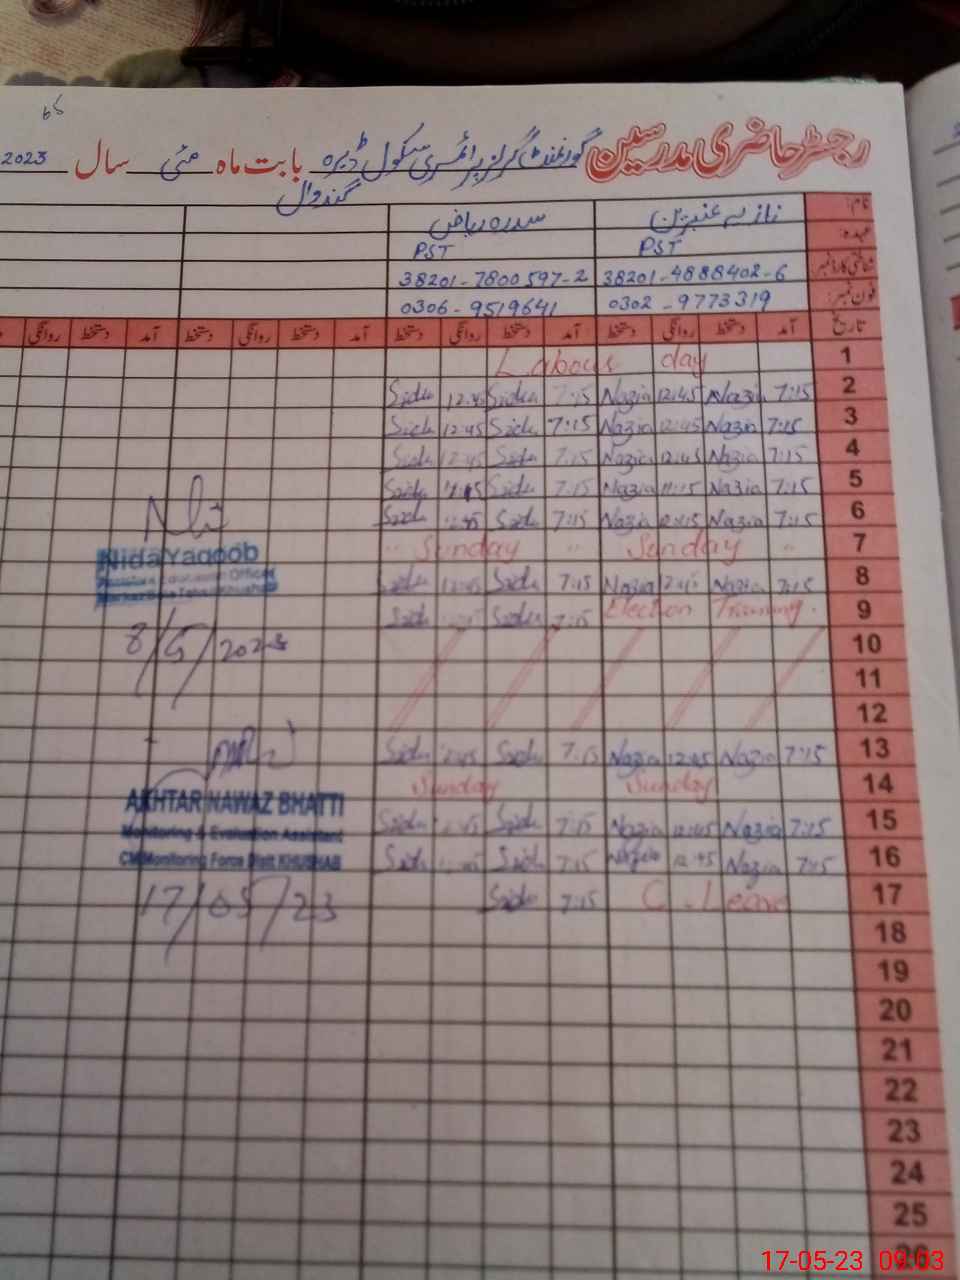 رجسٹر حاضری مدرسین گورنمنٹ گرلز پرائمری سکول ڈیرہ بابت ماہ مئی سال 2023
گندوال
نام: نازیہ عنبرین سدرہ ریاض
عہدہ: PST PST
شناختی کارڈ نمبر: 38201-4888402-6 38201-7800597-2
فون نمبر: 0302-9773319 0306-9519641
تاریخ آمد دستخط روانگی دستخط آمد دستخط روانگی دستخط آمد دستخط روانگی دستخط آمد دستخط روانگی
1 Labour day
2 7:15 Nazia 12:45 Nazia 7:15 Sidu 12:45 Sidu
3 7:15 Nazia 12:45 Nazia 7:15 Sidu 12:45 Sidu
4 7:15 Nazia 12:45 Nazia 7:15 Sidu 12:45 Sidu
5 7:15 Nazia 11:15 Nazia 7:15 Sidu 11:15 Sidu
6 7:15 Nazia 12:45 Nazia 7:15 Sidu 12:45 Sidu
7 " Sunday " Sunday "
8 7:15 Nazia 12:45 Nazia 7:15 Sidu 12:45 Sidu
9 Election Training. 7:15 Sidu Sidu
10
11
12
13 7:15 Nazia 12:45 Nazia 7:15 Sidu 12:45 Sidu
14 Sunday Sunday
15 7:15 Nazia 12:45 Nazia 7:15 Sidu 12:45 Sidu
16 7:15 Nazia 12:45 Nazia 7:15 Sidu Sidu
17 C. Leave 7:15 Sidu
18
19
20
21
22
23
24
25
26
Nida Yaqoob
8/5/2023
AKHTAR NAWAZ BHATTI
Monitoring & Evaluation Assistant
CM Monitoring Force Distt KHUSHAB
17/05/23
17-05-23 09:03